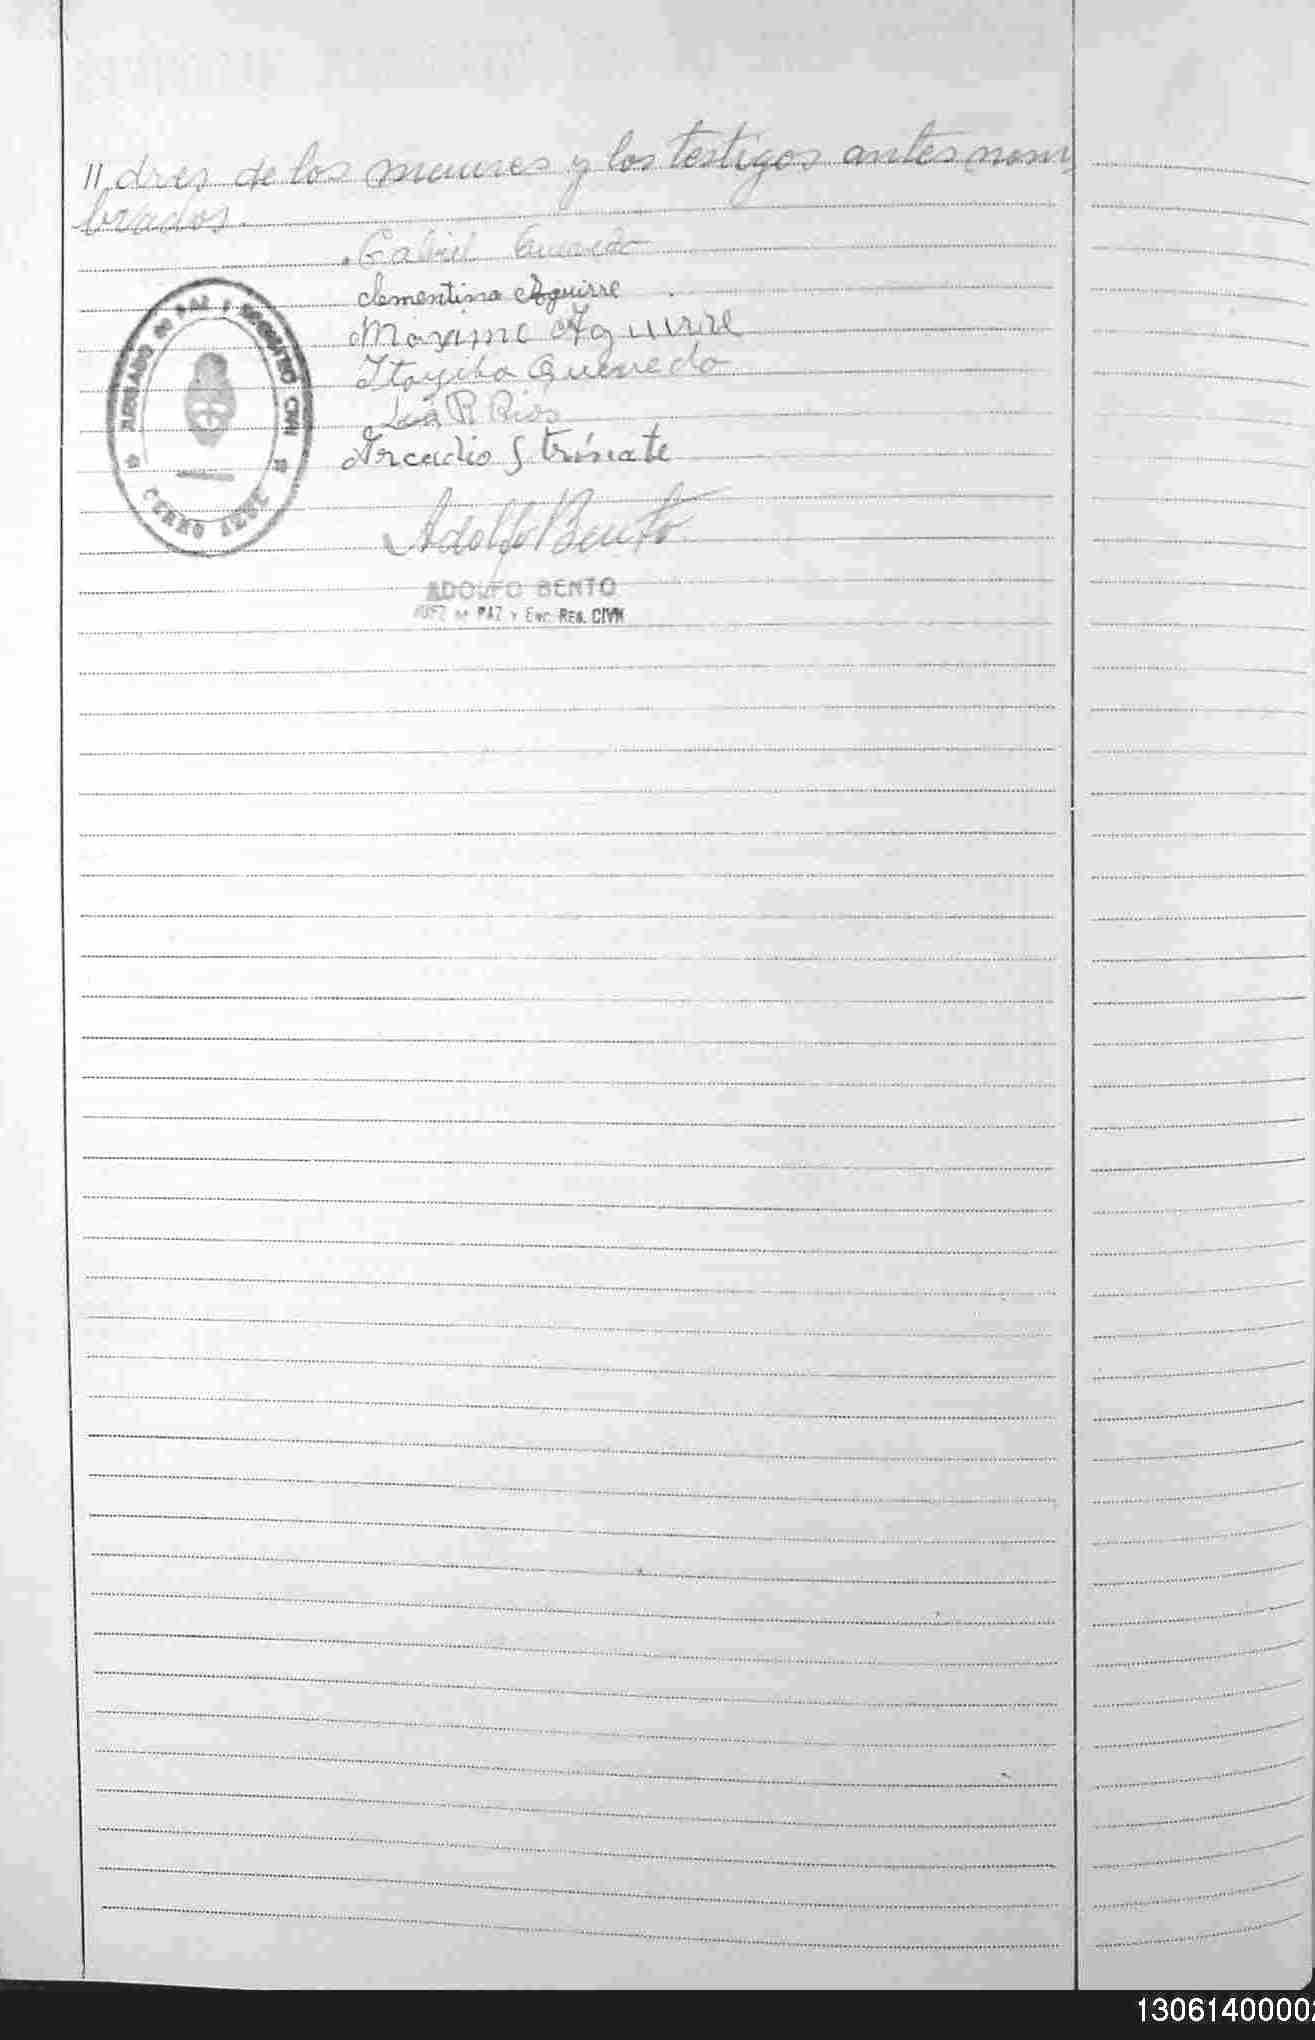 // dres de los menores y los testigos antes nom
brados.
Gabriel
Clementina Aguirre
Maximo Aguirre
Quevedo
R Rios
Arcadio
JUZGADO DE PAZ Y REGISTRO CIVIL
CERRO AZUL
Adolfo Bento
ADOLFO BENTO
JUEZ DE PAZ Y ENC. REG. CIVIL
1306140000